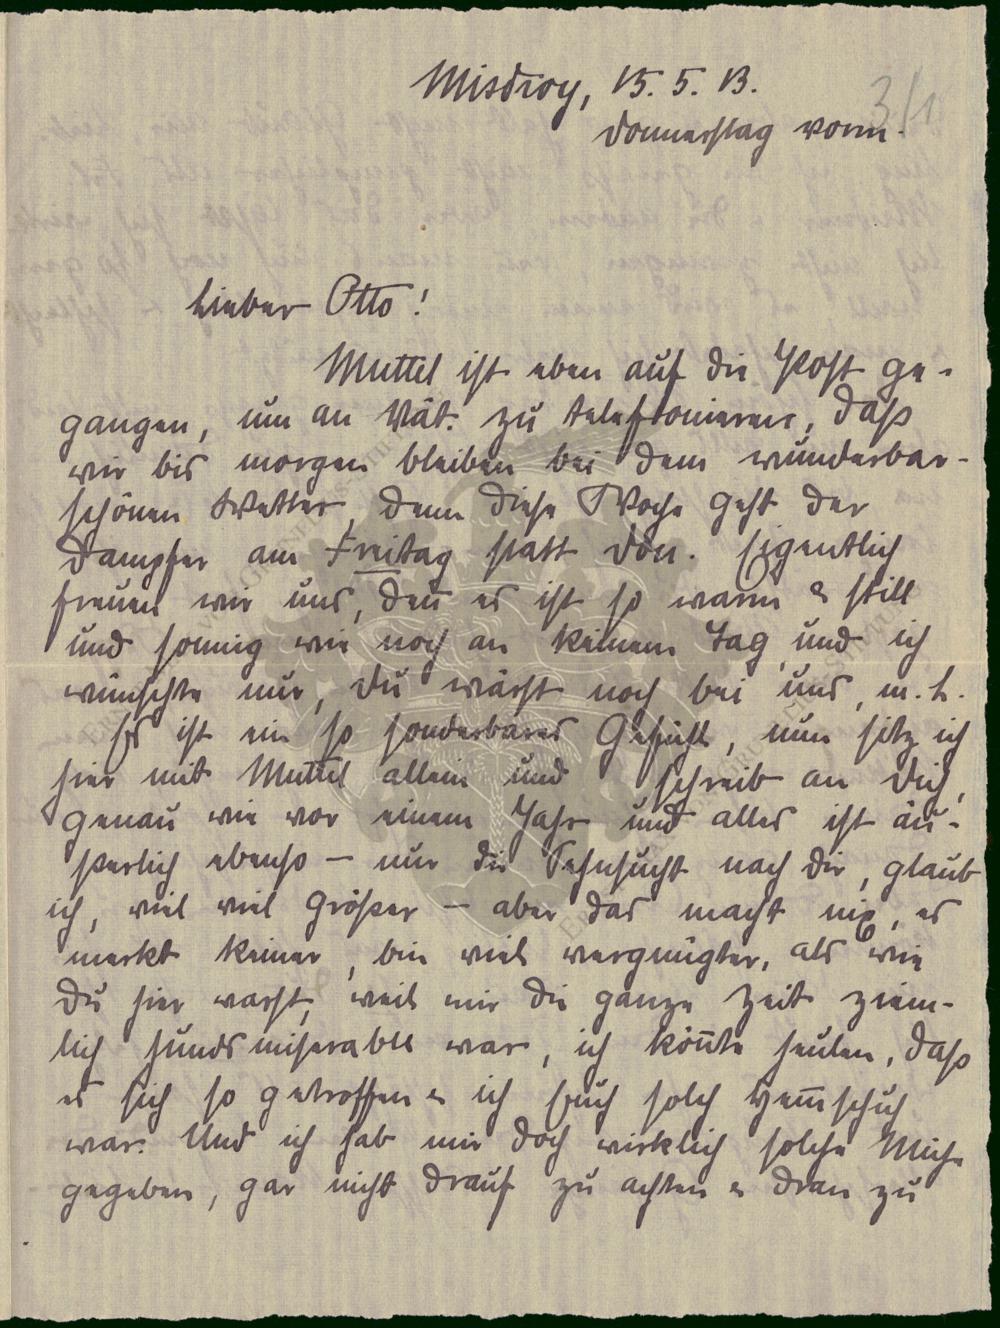 Misdroy, 15. 5. 13.
3/1
Donnerstag vorm.
Lieber Otto!
Muttel ist eben auf die Post ge-
gangen, um an Vat. zu telefonieren, daß
wir bis morgen bleiben bei dem wunderbar-
schönen Wetter, denn diese Woche geht der
Dampfer am Freitag statt Don. Eigentlich
freuen wir uns, den̅ es ist so warm & still
und sonnig wie noch an keinem Tag, und ich
wünschte nur, Du wärst noch bei uns, m. L.
Es ist ein so sonderbares Gefühl, nun sitz ich
hier mit Muttel allein und schreib an Dich,
genau wie vor einem Jahr und alles ist äu-
ßerlich ebenso – nur die Sehnsucht nach Dir, glaub
ich, viel viel größer – aber das macht nix, es
merkt keiner, bin viel vergnügter, als wie
Du hier warst, weil mir die ganze Zeit ziem-
lich hundsmiserabel war, ich kön̅te heulen, daß
es sich so getroffen & ich Euch solch Hem̅schuh
war. Und ich hab mir doch wirklich solche Mühe
gegeben, gar nicht drauf zu achten & dran zu